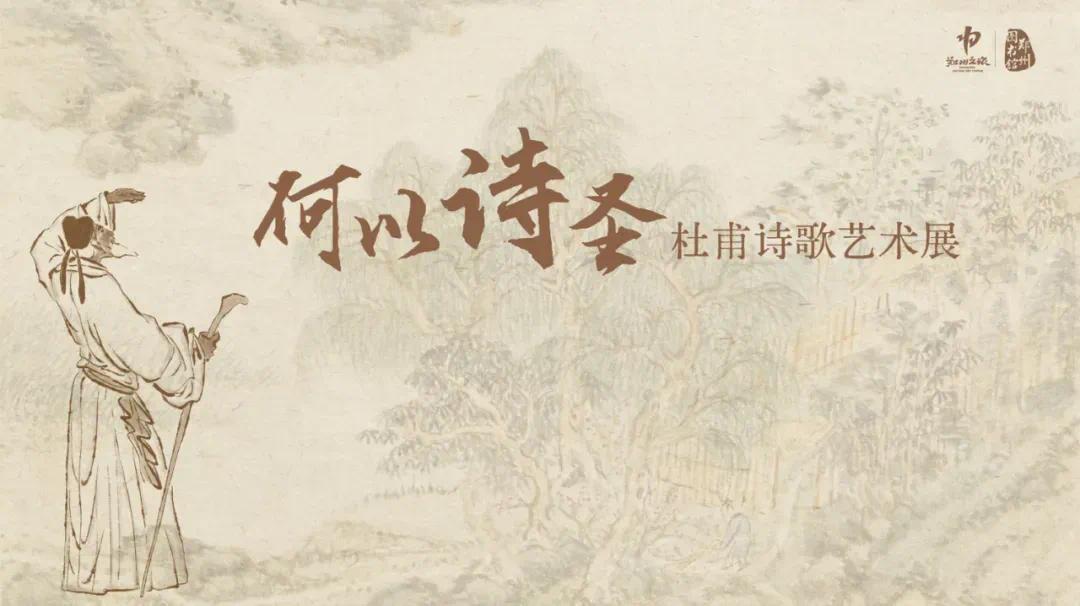 何以诗圣
杜甫诗歌艺术展
郑州文旅
郑州图书馆